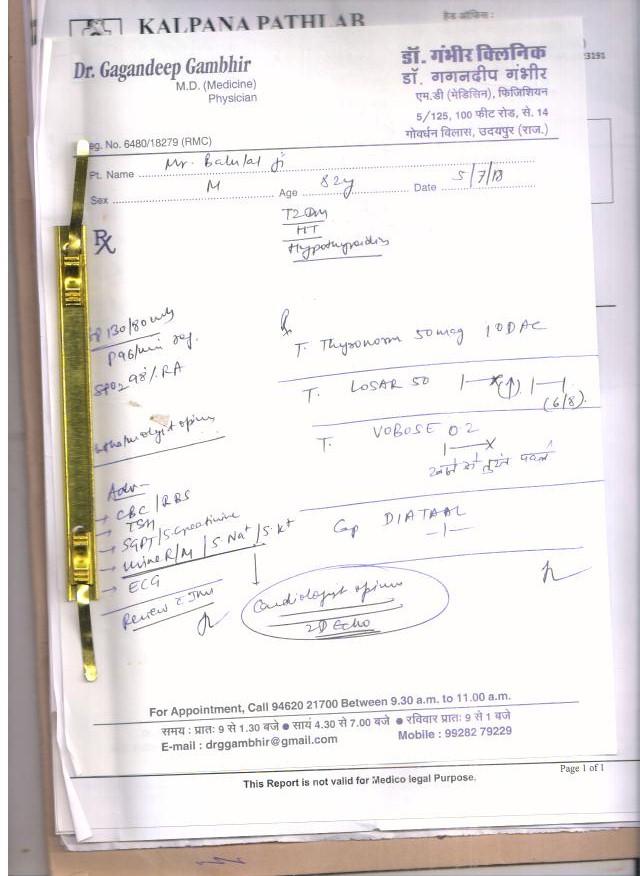 KALPANA PATHLAB
हेड ऑफिस :
23191
Dr. Gagandeep Gambhir
M.D. (Medicine)
Physician
डॉ. गंभीर क्लिनिक
डॉ. गगनदीप गंभीर
एम.डी (मेडिसिन), फिजिशियन
5/125, 100 फीट रोड, से. 14
गोवर्धन विलास, उदयपुर (राज.)
eg. No. 6480/18279 (RMC)
Pt. Name Mr. Balulal Ji
Sex M Age 82y Date 5/7/18
T2DM
HT
Hypothyroidism
BP 130/80
P 96/min reg.
SPO2 98% RA
T. Thyronorm 50 mcg 1 OD AC
T. LOSAR 50
(6/8).
T. VOBOSE 0.2
Cap DIATAAL
Adv-
→ CBC / RBS
→ TSH
→ SGPT / S. Creatinine
→ Urine R/M / S. Na+ / S. K+
→ ECG
Review
Cardiologist opinion
2D Echo
For Appointment, Call 94620 21700 Between 9.30 a.m. to 11.00 a.m.
समय : प्रातः 9 से 1.30 बजे ● सायं 4.30 से 7.00 बजे ● रविवार प्रातः 9 से 1 बजे
E-mail : drggambhir@gmail.com Mobile : 99282 79229
Page 1 of 1
This Report is not valid for Medico legal Purpose.